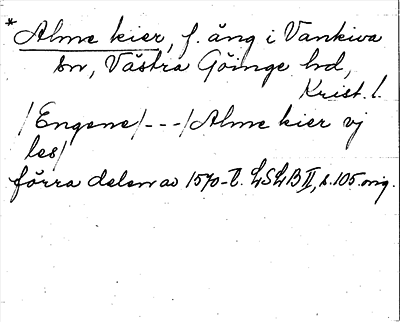 * Alme kier, f. äng i Vankiva
sn, Västra Göinge hd,
Krist. l.
/Engene/---/Alme kier vj
les/
förra delen av 1570-t. LSLB II, s. 105. orig.